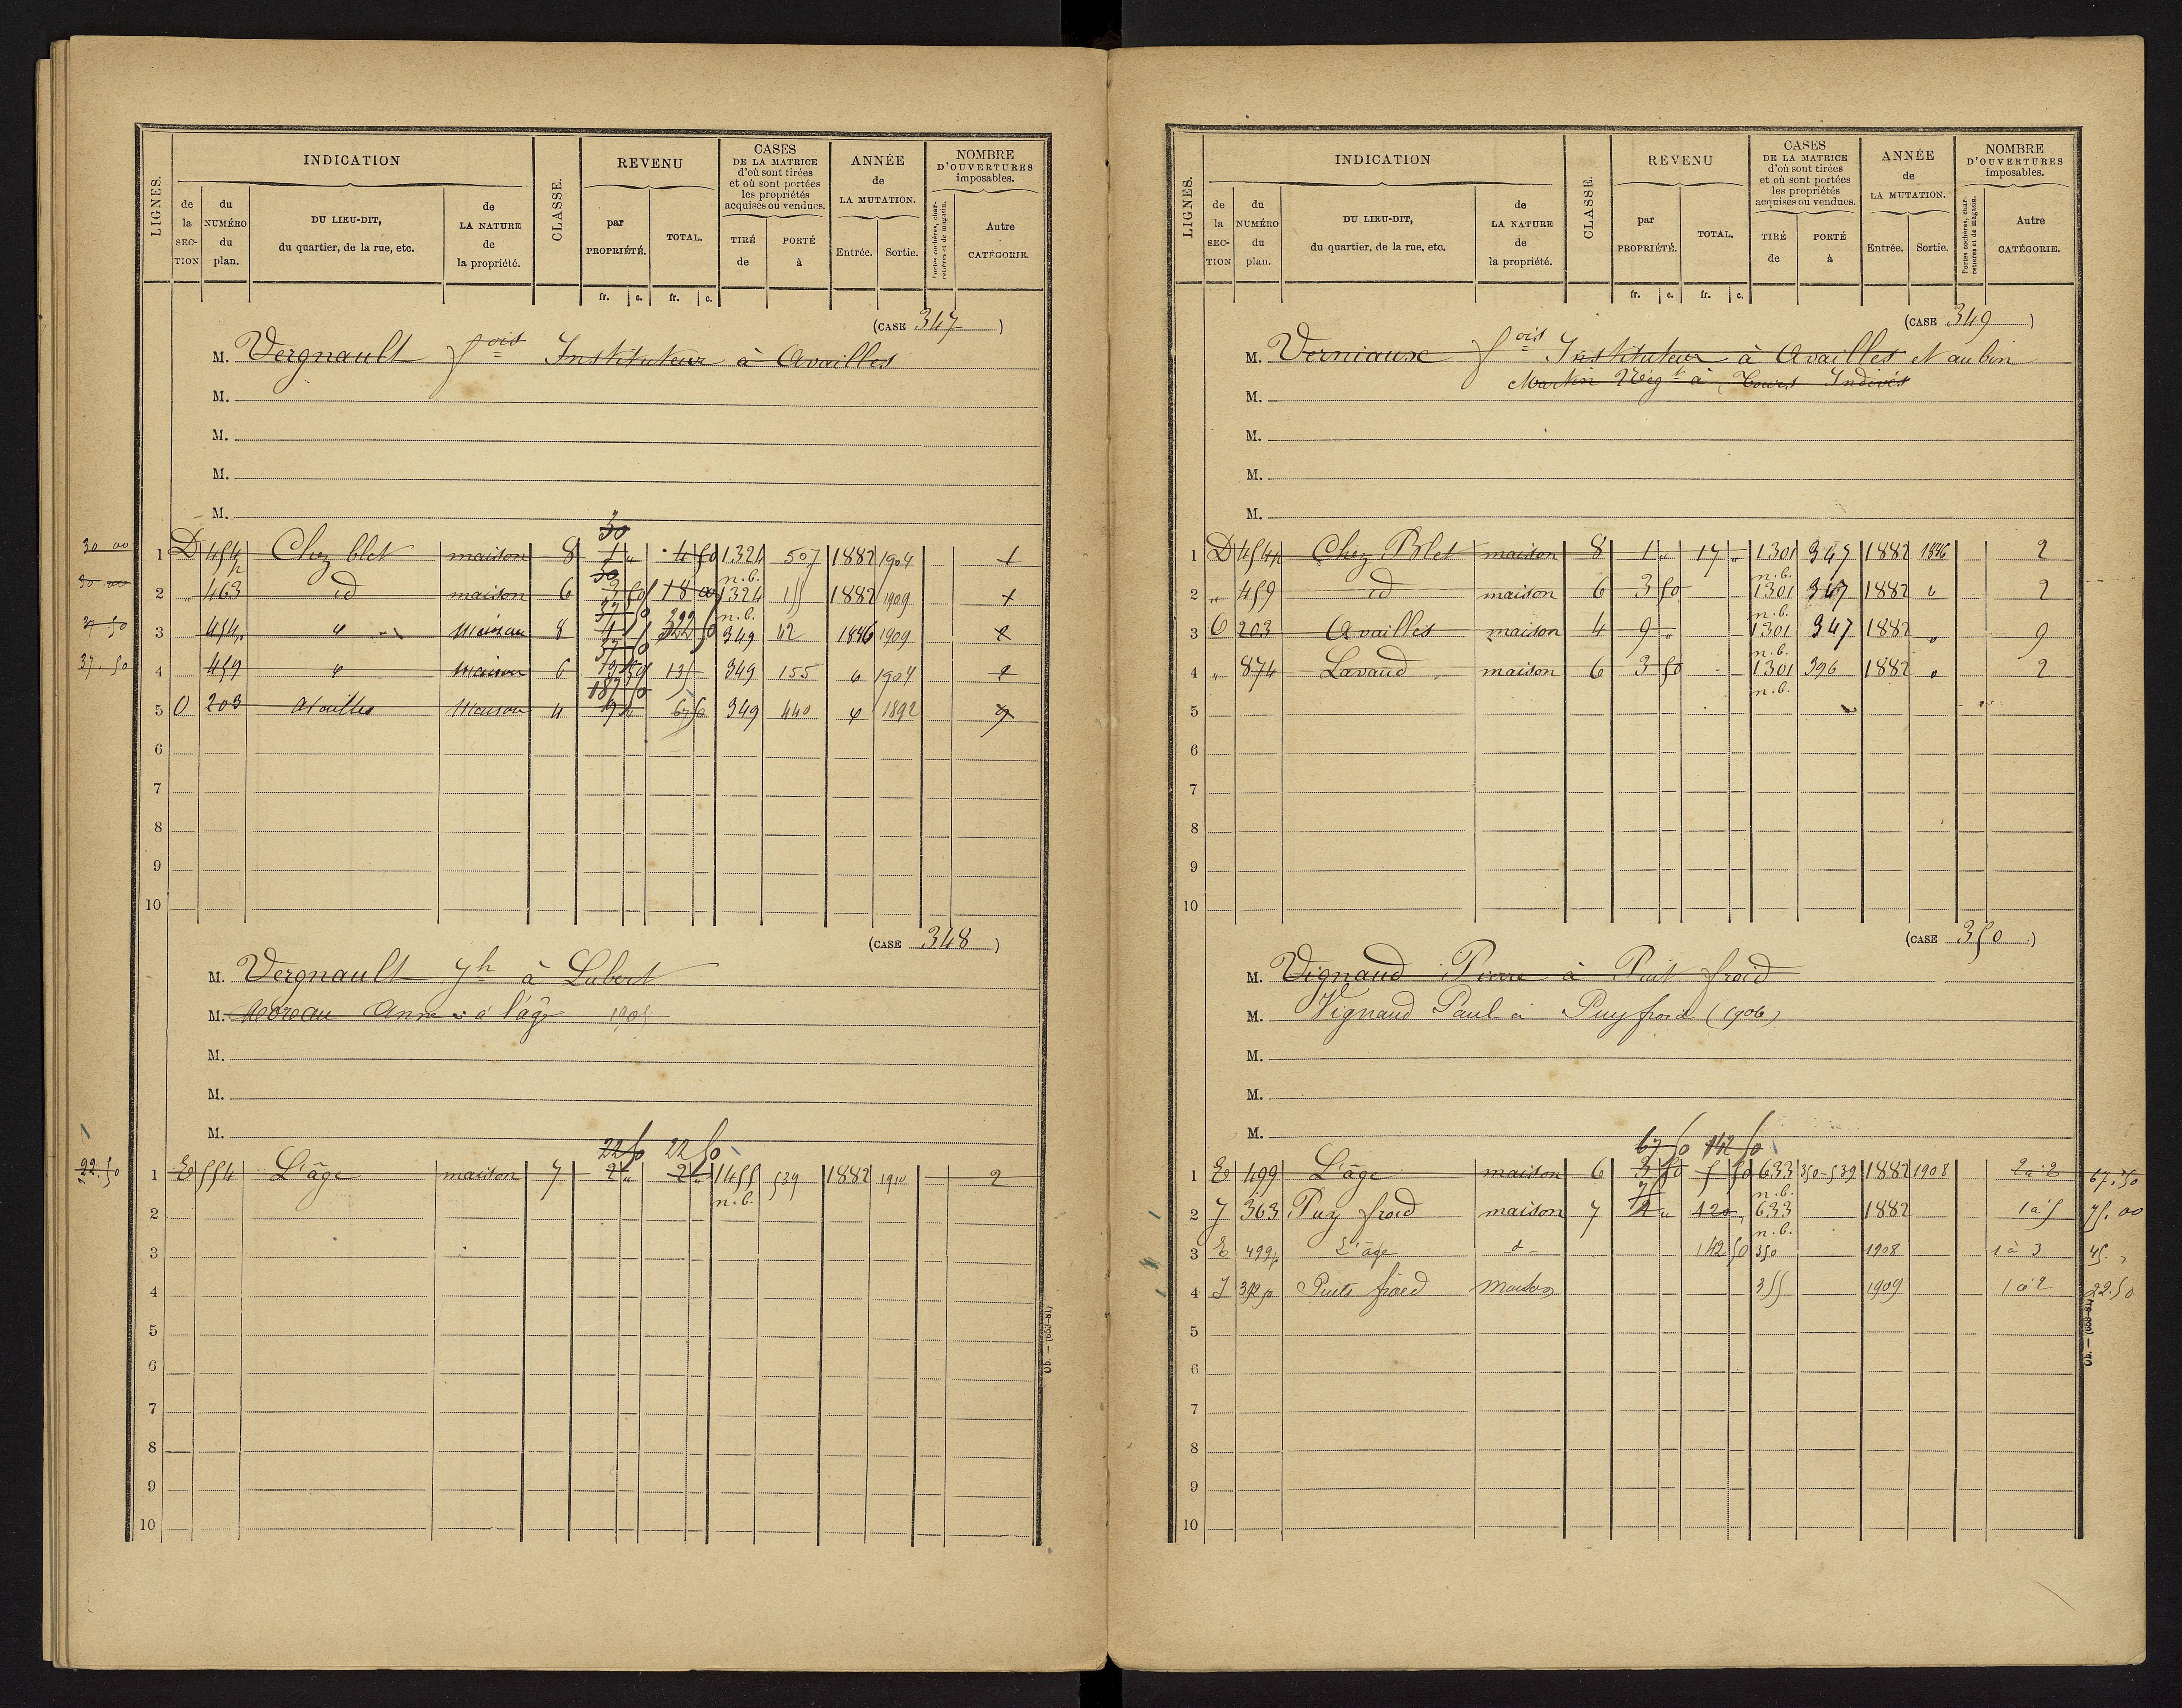 LIGNES.
INDICATION
CLASSE.
REVENU
CASES
DE LA MATRICE
d'où sont tirées
et où sont portées
les propriétés
acquises ou vendues.
ANNÉE
de
LA MUTATION.
NOMBRE
D'OUVERTURES
imposables.
de la SECTION
du NUMÉRO du plan.
DU LIEU-DIT,
du quartier, de la rue, etc.
de LA NATURE de la propriété.
par PROPRIÉTÉ.
TOTAL.
TIRÉ de
PORTÉ à
Entrée.
Sortie.
Portes cochères, charretières et de magasin.
Autre CATÉGORIE.
fr. c. fr. c.
(CASE 347)
M. Vergnault fois Instituteur à Availles
M.
M.
M.
M.
30
30 00 1 D 454 Chez blet maison 8 1 " 4 50 1324 507 1882 1904 1
30 n.b.
30 00 2 " 463 id maison 6 3 50 18 00 1324 155 1882 1909 1
37 50 n.b.
37 50 3 454 " maison 8 349 42 1886 1909 2
37 50
37.50 4 459 " maison 6 135 349 155 " 1904 2
187 50
5 O 203 Availles maison 4 9 " 349 440 " 1892 9
6
7
8
9
10
(CASE 348)
M. Vergnault Jh à Lubert
M. Moreau Anne à l'âge 1905
M.
M.
M.
22 50 22 50
22.50 1 E 554 L'âge maison 7 2 " 2 " 1455 539 1882 1910 2
n.b.
2
3
4
5
6
7
8
9
10
Ob. — (633-81)
LIGNES.
INDICATION
CLASSE.
REVENU
CASES
DE LA MATRICE
d'où sont tirées
et où sont portées
les propriétés
acquises ou vendues.
ANNÉE
de
LA MUTATION.
NOMBRE
D'OUVERTURES
imposables.
de la SECTION
du NUMÉRO du plan.
DU LIEU-DIT,
du quartier, de la rue, etc.
de LA NATURE de la propriété.
par PROPRIÉTÉ.
TOTAL.
TIRÉ de
PORTÉ à
Entrée.
Sortie.
Portes cochères, charretières et de magasin.
Autre CATÉGORIE.
fr. c. fr. c.
(CASE 349)
M. Verniaux fois Instituteur à Availles et aubin
Martin Négt à Tours Indivis
M.
M.
M.
M.
1 D 454 Chez Blet maison 8 1 " 17 " 1301 347 1882 1886 2
n.b.
2 " 459 id maison 6 3 50 1301 347 1882 " 2
n.b.
3 O 203 Availles maison 4 9 " 1301 347 1882 " 9
n.b.
4 " 874 Lavaud maison 6 3 50 1301 396 1882 " 2
n.b.
5
6
7
8
9
10
(CASE 350)
M. Vignaud Pierre à Puit froid
M. Vignaud Paul à Puyfroid (1906)
M.
M.
M.
67 50 142 50
1 E 499 L'âge maison 6 3 50 5 50 633 350-539 1882 1908 2 à 2 67.50
75 n.b.
2 J 363 Puy froid maison 7 2 " 120 633 1882 1 à 5 75.00
n.b.
3 E 499p L'âge d 142 50 350 1908 1 à 3 45. "
4 J 392p Puits froid Maison 355 1909 1 à 2 22.50
5
6
7
8
9
10
Ob. — (633-81)